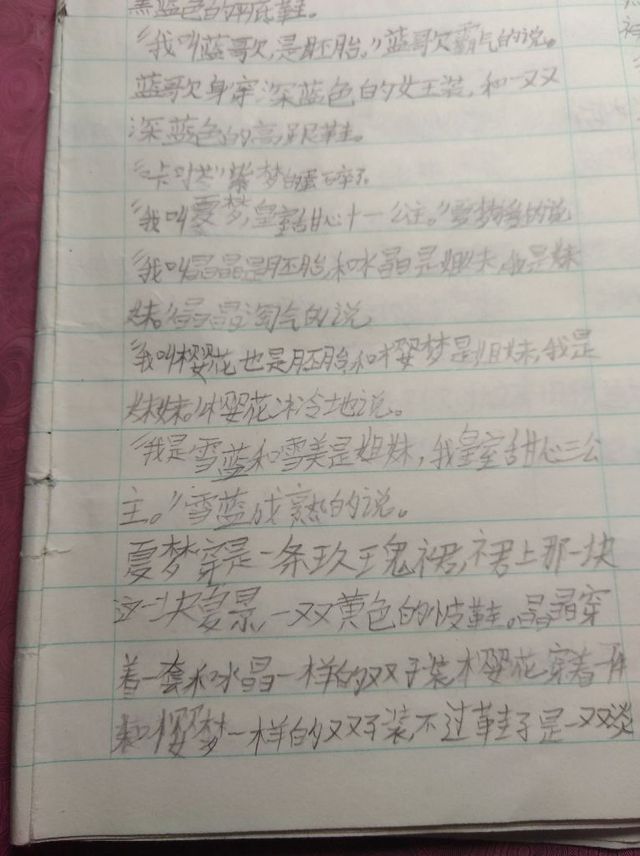 黑蓝色的
"我叫蓝歌欠,是胚胎,"蓝歌欠霸气的说。
蓝歌欠身穿深蓝色的女王装,和一双
深蓝色的高跟鞋。
紫梦的蛋碎了
"我叫夏梦,皇室甜心十一公主。"夏梦的说
"我叫晶晶是胚胎,和水晶是姐妹,我是妹
妹。"晶晶淘气的说
"我叫樱花也是胚胎和樱梦是姐妹,我是
妹妹。"樱花冰冷地说。
"我是雪蓝和雪美是姐妹,我皇室甜心三公
主。"雪蓝成熟的说。
夏梦穿是一条玖王瑰裙,裙上那一块
这一块夏景,一双黄色的皮鞋。晶晶穿
着一套和水晶一样的双子装樱花穿着一件
和樱梦一样的双子装,不过鞋子是一双淡